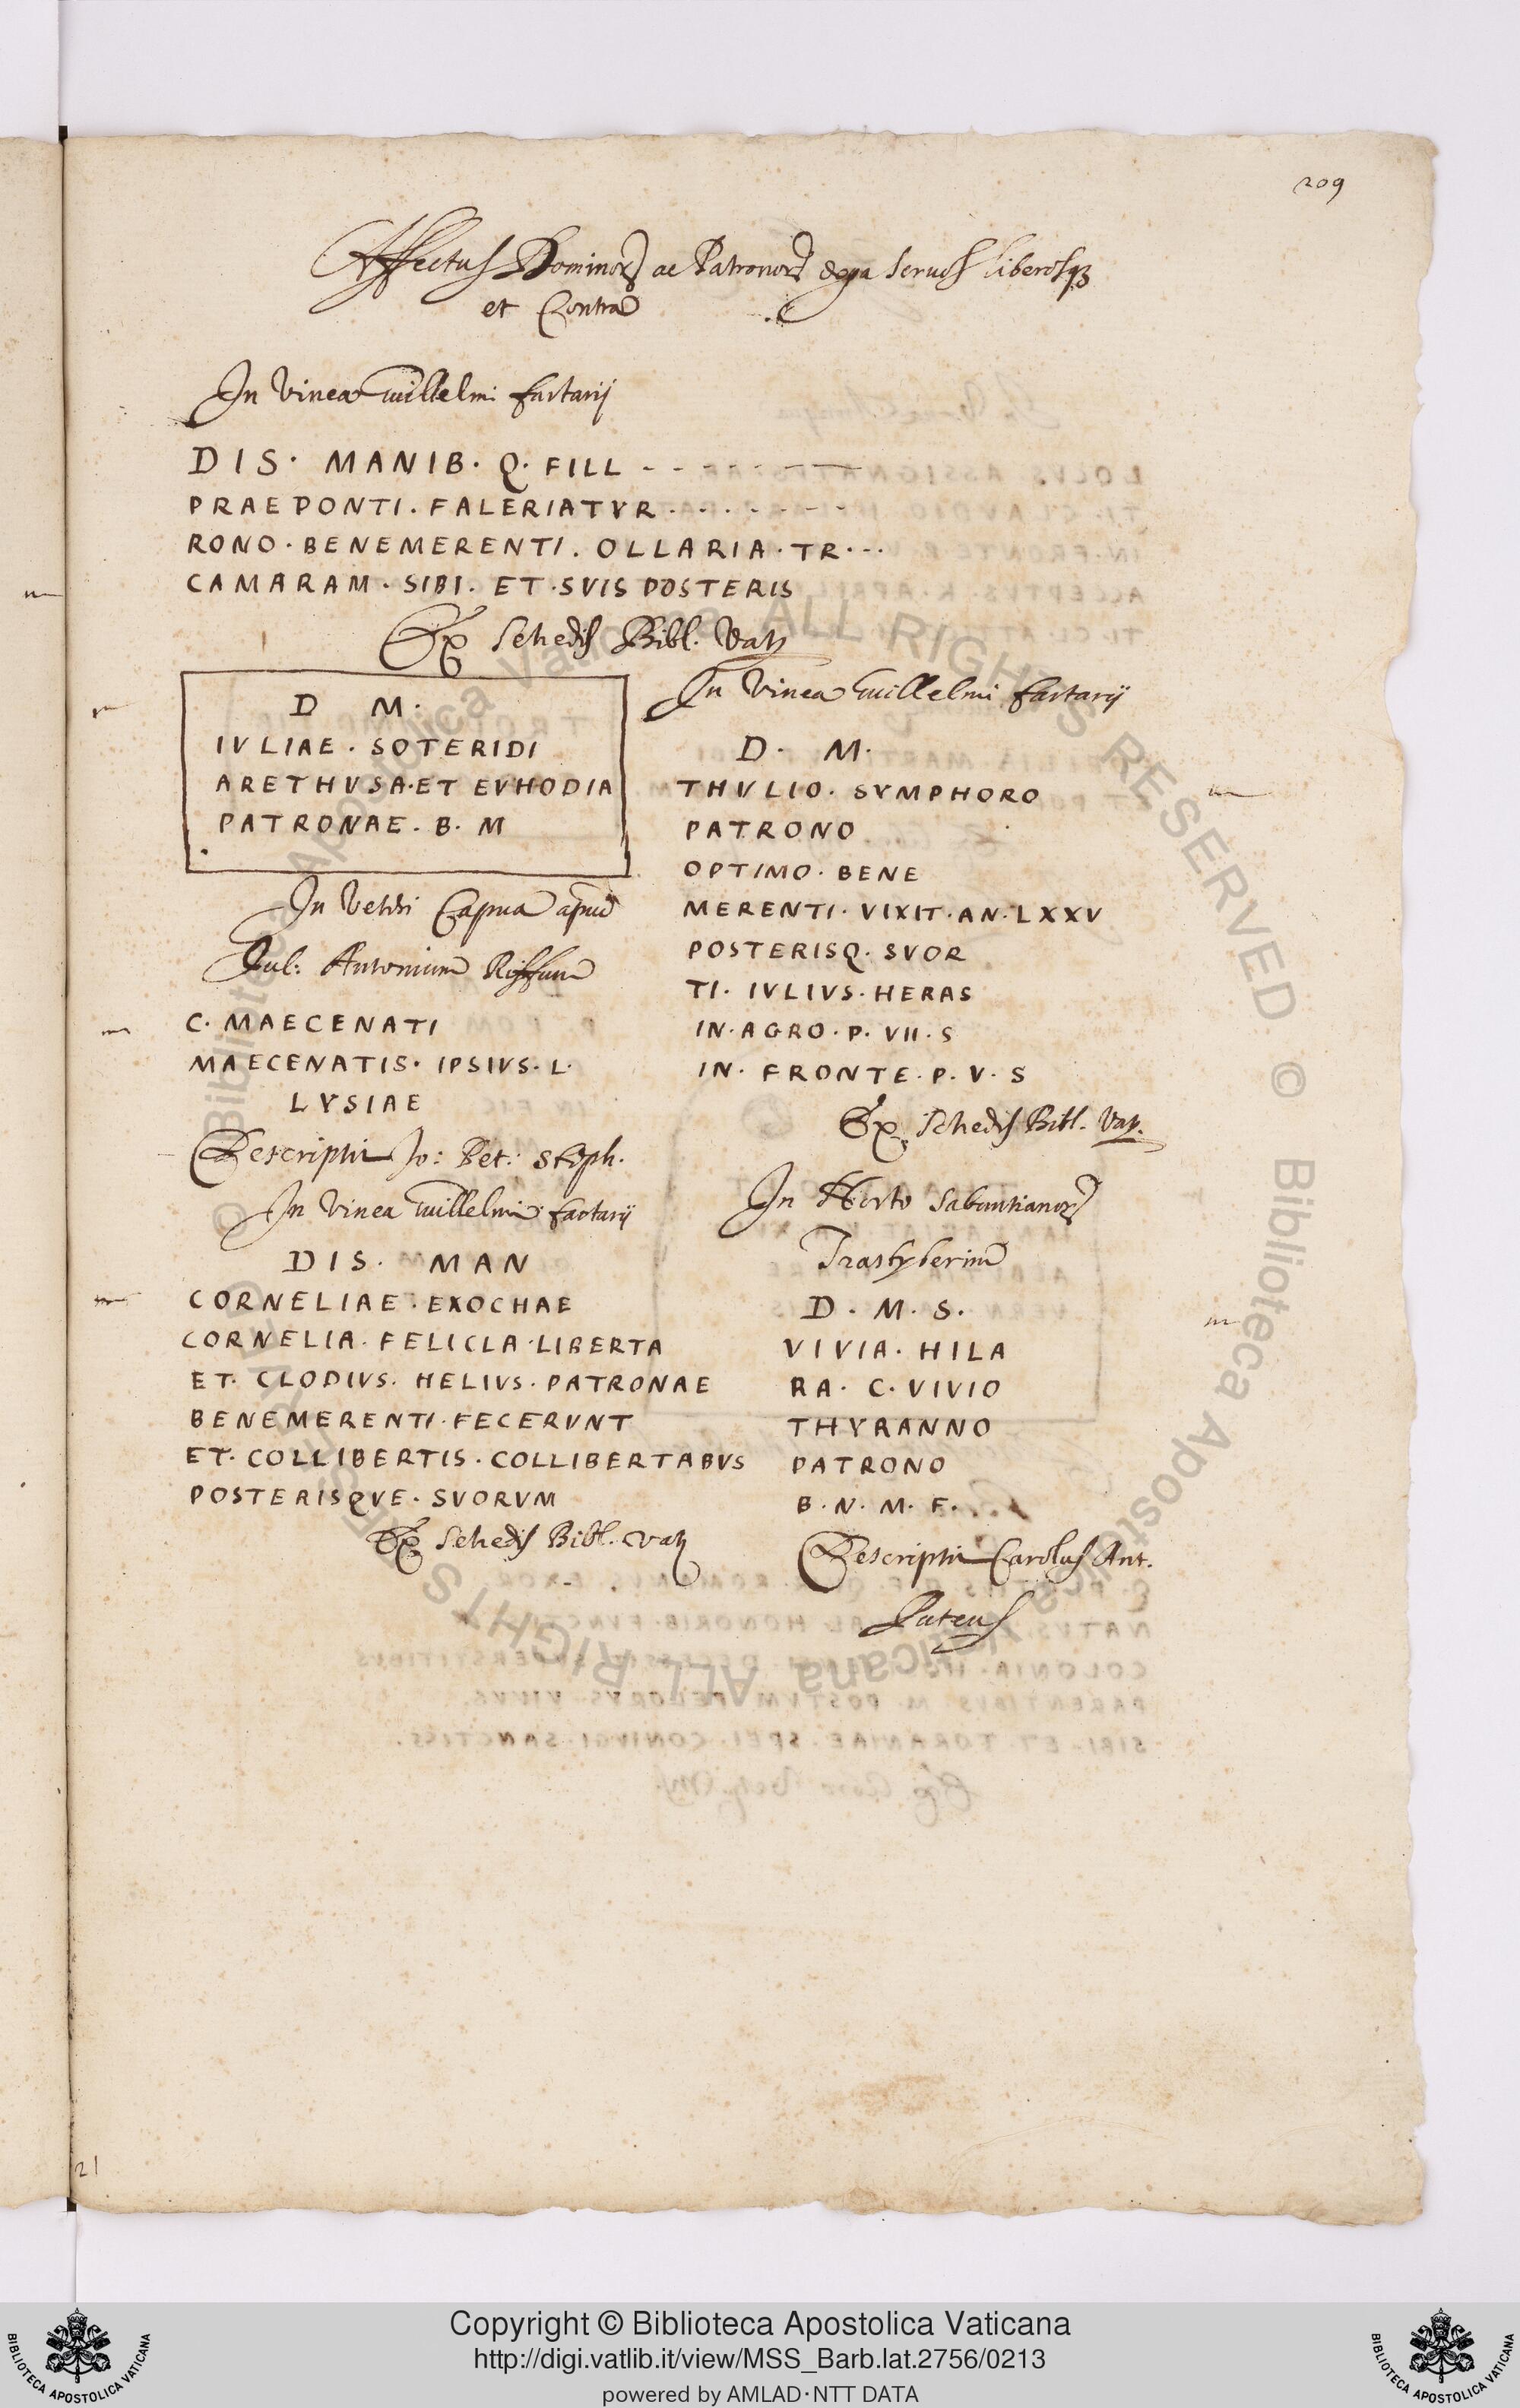 209
Affectus Dominor ac Patronor erga servos liberosq3
et Contra
In Vinea Guillelmi Fartarij
DIS· MANIB· Q· FILL - - - - - - -
PRAEPONTI. FALERIATVR. - - - - - -
RONO·BENEMERENTI. OLLARIA·TR·--
CAMARAM·SIBI. ET·SVIS POSTERIS
Ex Schedis Bibl. Vat.
D M·
IVLIAE·SOTERIDI
ARETHVSA·ET EVHODIA
PATRONAE·B·M
In Veteri Capua apud
Iul: Antonium Riffum
C·MAECENATI
MAECENATIS·IPSIVS·L·
LYSIAE
Descripsit Jo: Pet: Steph.
In Vinea Guillelmi Fartarij
DIS· MAN
CORNELIAE·EXOCHAE
CORNELIA·FELICLA·LIBERTA
ET·CLODIVS·HELIVS·PATRONAE
BENEMERENTI·FECERVNT
ET·COLLIBERTIS·COLLIBERTABVS
POSTERISQVE·SVORVM
Ex Schedis Bibl. Vat
In Vinea Guillelmi Fartarij
D· M·
THVLIO·SYMPHORO
PATRONO
OPTIMO·BENE
MERENTI·VIXIT·AN·LXXV
POSTERISQ·SVOR
TI·IVLIVS·HERAS
IN·AGRO·P·VII·S
IN·FRONTE·P·V·S
Ex Schedis Bibl. Vat.
In Horto Sabuntianor
Trastyberim
D·M·S·
VIVIA·HILA
RA·C·VIVIO
THYRANNO
PATRONO
B·N·M·F·
Descripsit Carolus Ant.
Puteus
21
Copyright © Biblioteca Apostolica Vaticana
http://digi.vatlib.it/view/MSS_Barb.lat.2756/0213
powered by AMLAD·NTT DATA
© Biblioteca Apostolica Vaticana ALL RIGHTS RESERVED
© Biblioteca Apostolica Vaticana ALL RIGHTS RESERVED
BIBLIOTECA APOSTOLICA VATICANA
BIBLIOTECA APOSTOLICA VATICANA